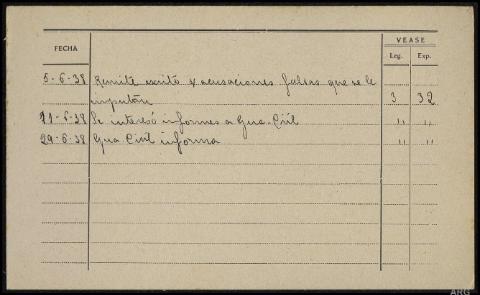 FECHA
VEASE
Leg. Exp.
5-6-38 Remite escrito x acusaciones falsas que se le
imputan 3 32
11-6-38 Se interesó informes a Gua. Civil " "
29-6-38 Gua. Civil informa " "
ARG